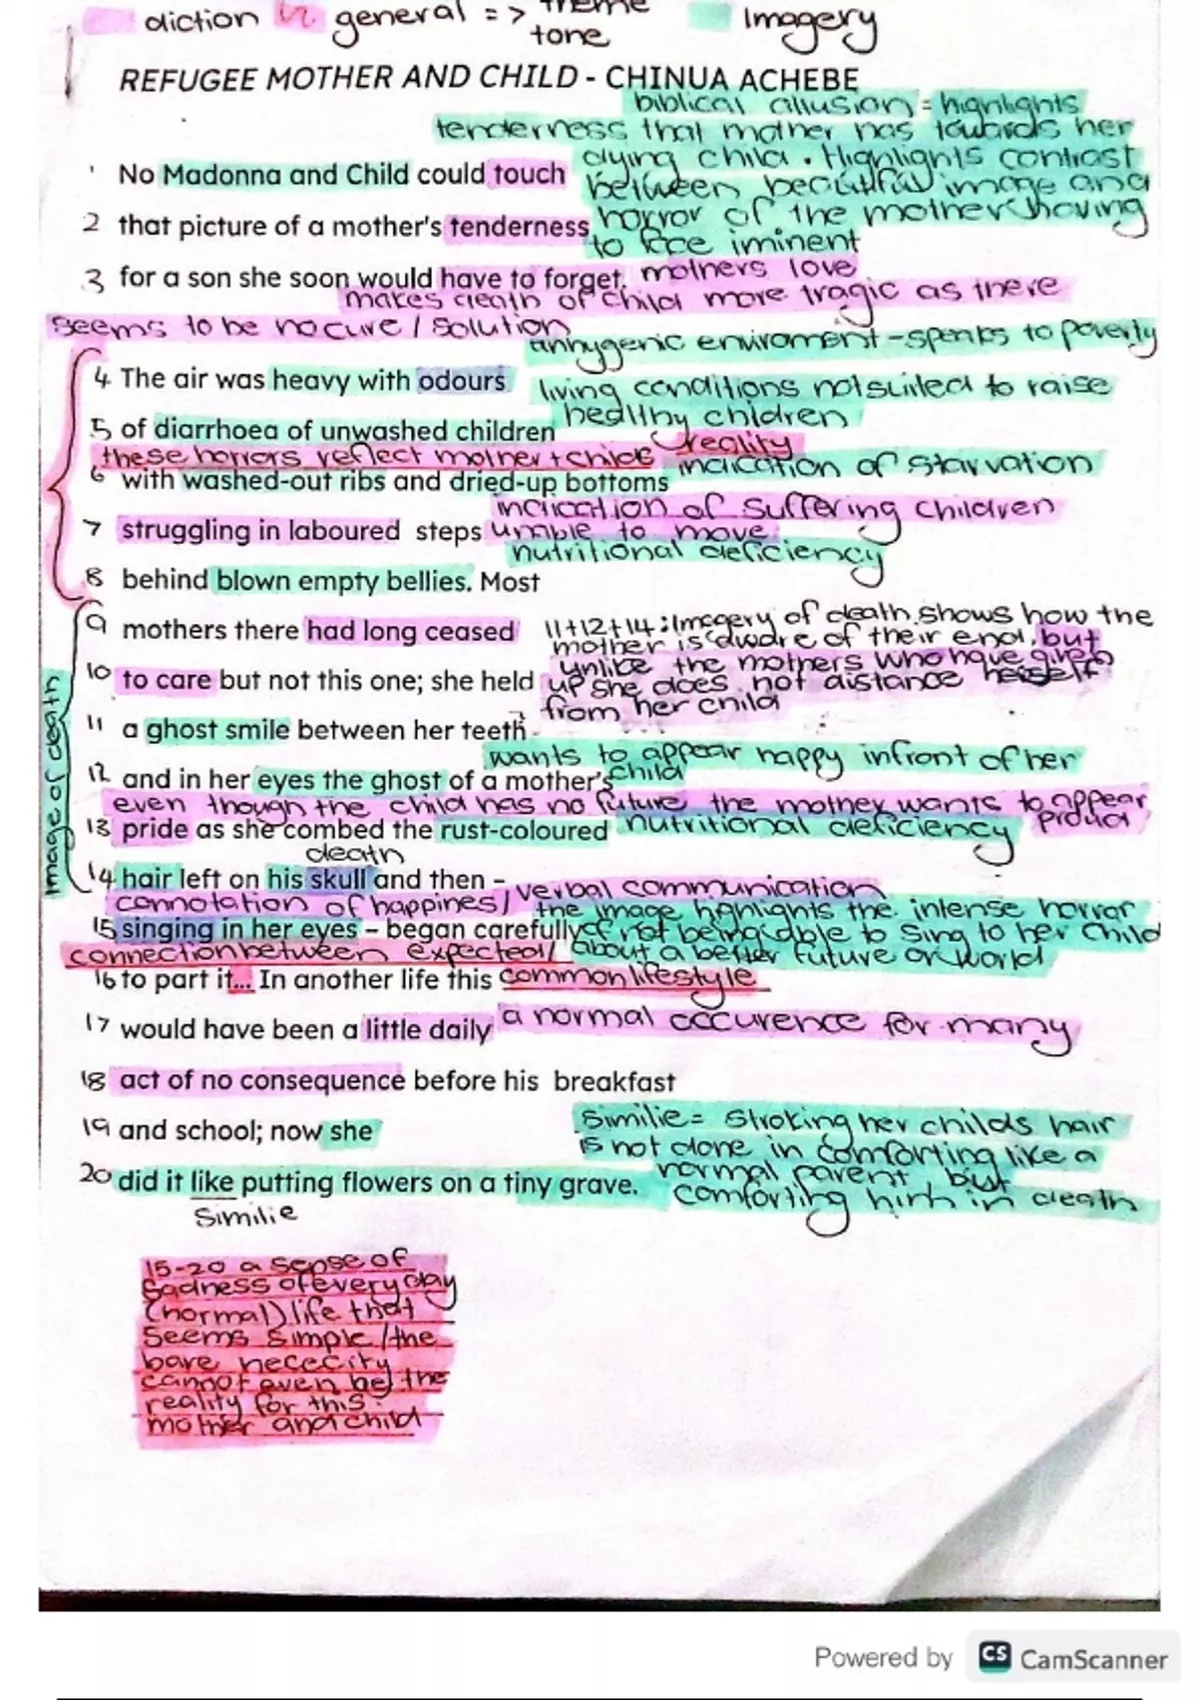 diction in general => theme
tone
Imagery
REFUGEE MOTHER AND CHILD - CHINUA ACHEBE
biblical allusion = highlights
tenderness that mother has towards her
dying child. Highlights contrast
1 No Madonna and Child could touch
between beautiful image and
2 that picture of a mother's tenderness
horror of the mother having
to face iminent
3 for a son she soon would have to forget.
mothers love
makes death of child more tragic as there
seems to be no cure / solution
enviroment - speaks to poverty
4 The air was heavy with odours
living conditions not suited to raise
healthy children
5 of diarrhoea of unwashed children
these horrors reflect mother + childs reality
6 with washed-out ribs and dried-up bottoms
indication of starvation
indication of suffering children
7 struggling in laboured steps
unable to move
nutritional deficiency
8 behind blown empty bellies. Most
9 mothers there had long ceased
11+12+14: Imagery of death. shows how the
mother is aware of their end. but
unlike the mothers who have given
10 to care but not this one; she held
up she does not distance herself
from her child
11 a ghost smile between her teeth
wants to appear happy infront of her
child
12 and in her eyes the ghost of a mother's
even though the child has no future the mother wants to appear
proud
13 pride as she combed the rust-coloured
nutritional deficiency
death
14 hair left on his skull and then -
Image of death
verbal communication
connotation of happines/
the image highlights the intense horror
15 singing in her eyes – began carefully
of not being able to sing to her child
about a better future or world
connection between expected/
16 to part it... In another life this
common lifestyle
17 would have been a little daily
a normal occurence for many
18 act of no consequence before his breakfast
19 and school; now she
Similie = Stroking her childs hair
is not done in comforting like a
normal parent, but
20 did it like putting flowers on a tiny grave.
comforting him in death
Similie
15-20 a sense of
sadness of every day
(normal) life that
seems simple / the
bare nececity
cannot even be the
reality for this
mother and child
Powered by CS CamScanner